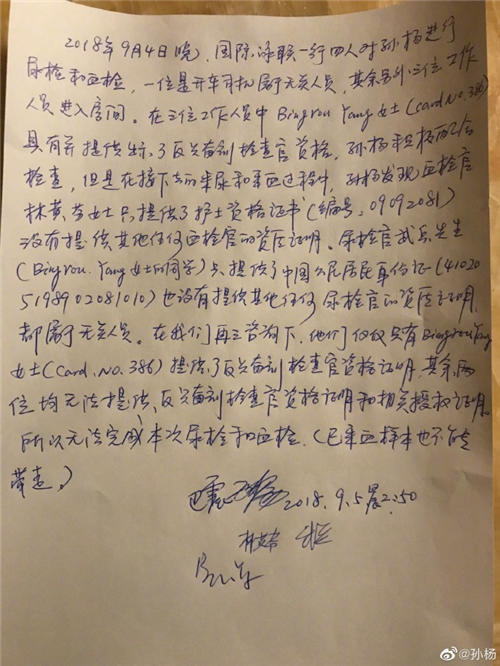 2018年9月4日晚,国际泳联一行四人对孙杨进行
尿检和血检,一位是开车司机属于无关人员,其余另外三位工作
人员进入房间。在三位工作人员中Bingrou Yang女士(card.No.386)
具有并提供出示了反兴奋剂检查官资格,孙杨积极配合
检查,但是在接下去的采尿和采血过程中,孙杨发现血检官
林 女士只提供了护士资格证书(编号:09092081)
没有提供其他任何血检官的资历证明。尿检官 先生
(Bingrou.Yang女士的同学)只提供了中国公民居民身份证(41020
5198902081010)也没有提供其他任何尿检官的资历证明,
都属于无关人员。在我们再三咨询下,他们仅仅只有Bingrou Yang
女士(Card.No.386)提供了反兴奋剂检查官资格证明,其余两
位均无法提供反兴奋剂检查官资格证明和相关授权证明。
所以无法完成本次尿检和血检。(已采血样本也不能
带走。)
2018.9.5晨2:50
@孙杨